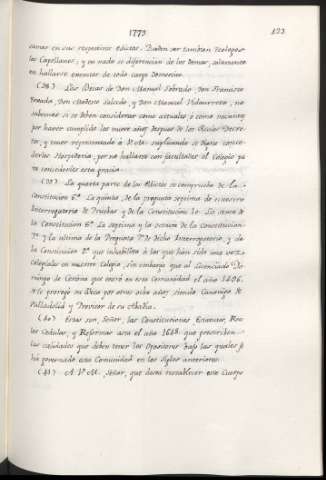 1773
123
canas en sus respectivos Edictos. Pueden ser tambien Teologos
los Capellanes; y en nada se diferencian de los demas, solamente
en hallarse exentos de toda carga Domestica.
(38) Las Becas de Don Manuel Sobrado, Don Francisco
Don Modesto Salcedo, y Don Manuel Vidaurreta, no
sabemos si se deben considerar como actuales ó como vacantes
por haver cumplido los nueve años despues de los Reales Decre-
tos, y tener representado à V. M. suplicando se digne conce-
derlas Hospederia, por no hallarse con facultades el Colegio pa
ra concederles esta gracia.
(39) La quarta parte de los Edictos se comprueba de la
Constitucion 6ª La quinta, de la pregunta septima de nuestro
Interrogatorio de Pruebas y de la Constitucion La sexta de
la Constitucion 6ª La septima y la octava de la Constitucion
7ª y la ultima de la Pregunta 7ª de dicho Interrogatorio, y de
la Constitucion 2ª que inhabilita à los que han sido una vez
colegiales en nuestro Colegio, sin embargo que al Licenciado Do-
mingo de Cerdena que entró en esta Comunidad el año 1606.
se le prorogó su Beca por otros ocho años siendo Canonigo de
Valladolid y Provisor de su Abadia.
(40) Estas son, Señor, las Constituciones, Estatutos, Rea
les Cedulas, y Reformas asta el año 1648. que prescriben
las calidades que deben tener los Opositores bajo las quales se
há governado esta Comunidad en los siglos anteriores.
(41) A V. M. Señor, que desea restablecer este Cuerpo